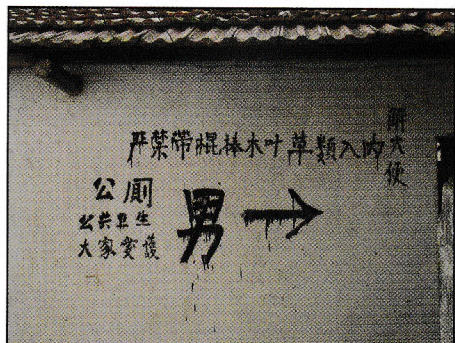 严禁帶棍棒木叶草類入内
解大便
公廁
公共卫生
大家爱護
男